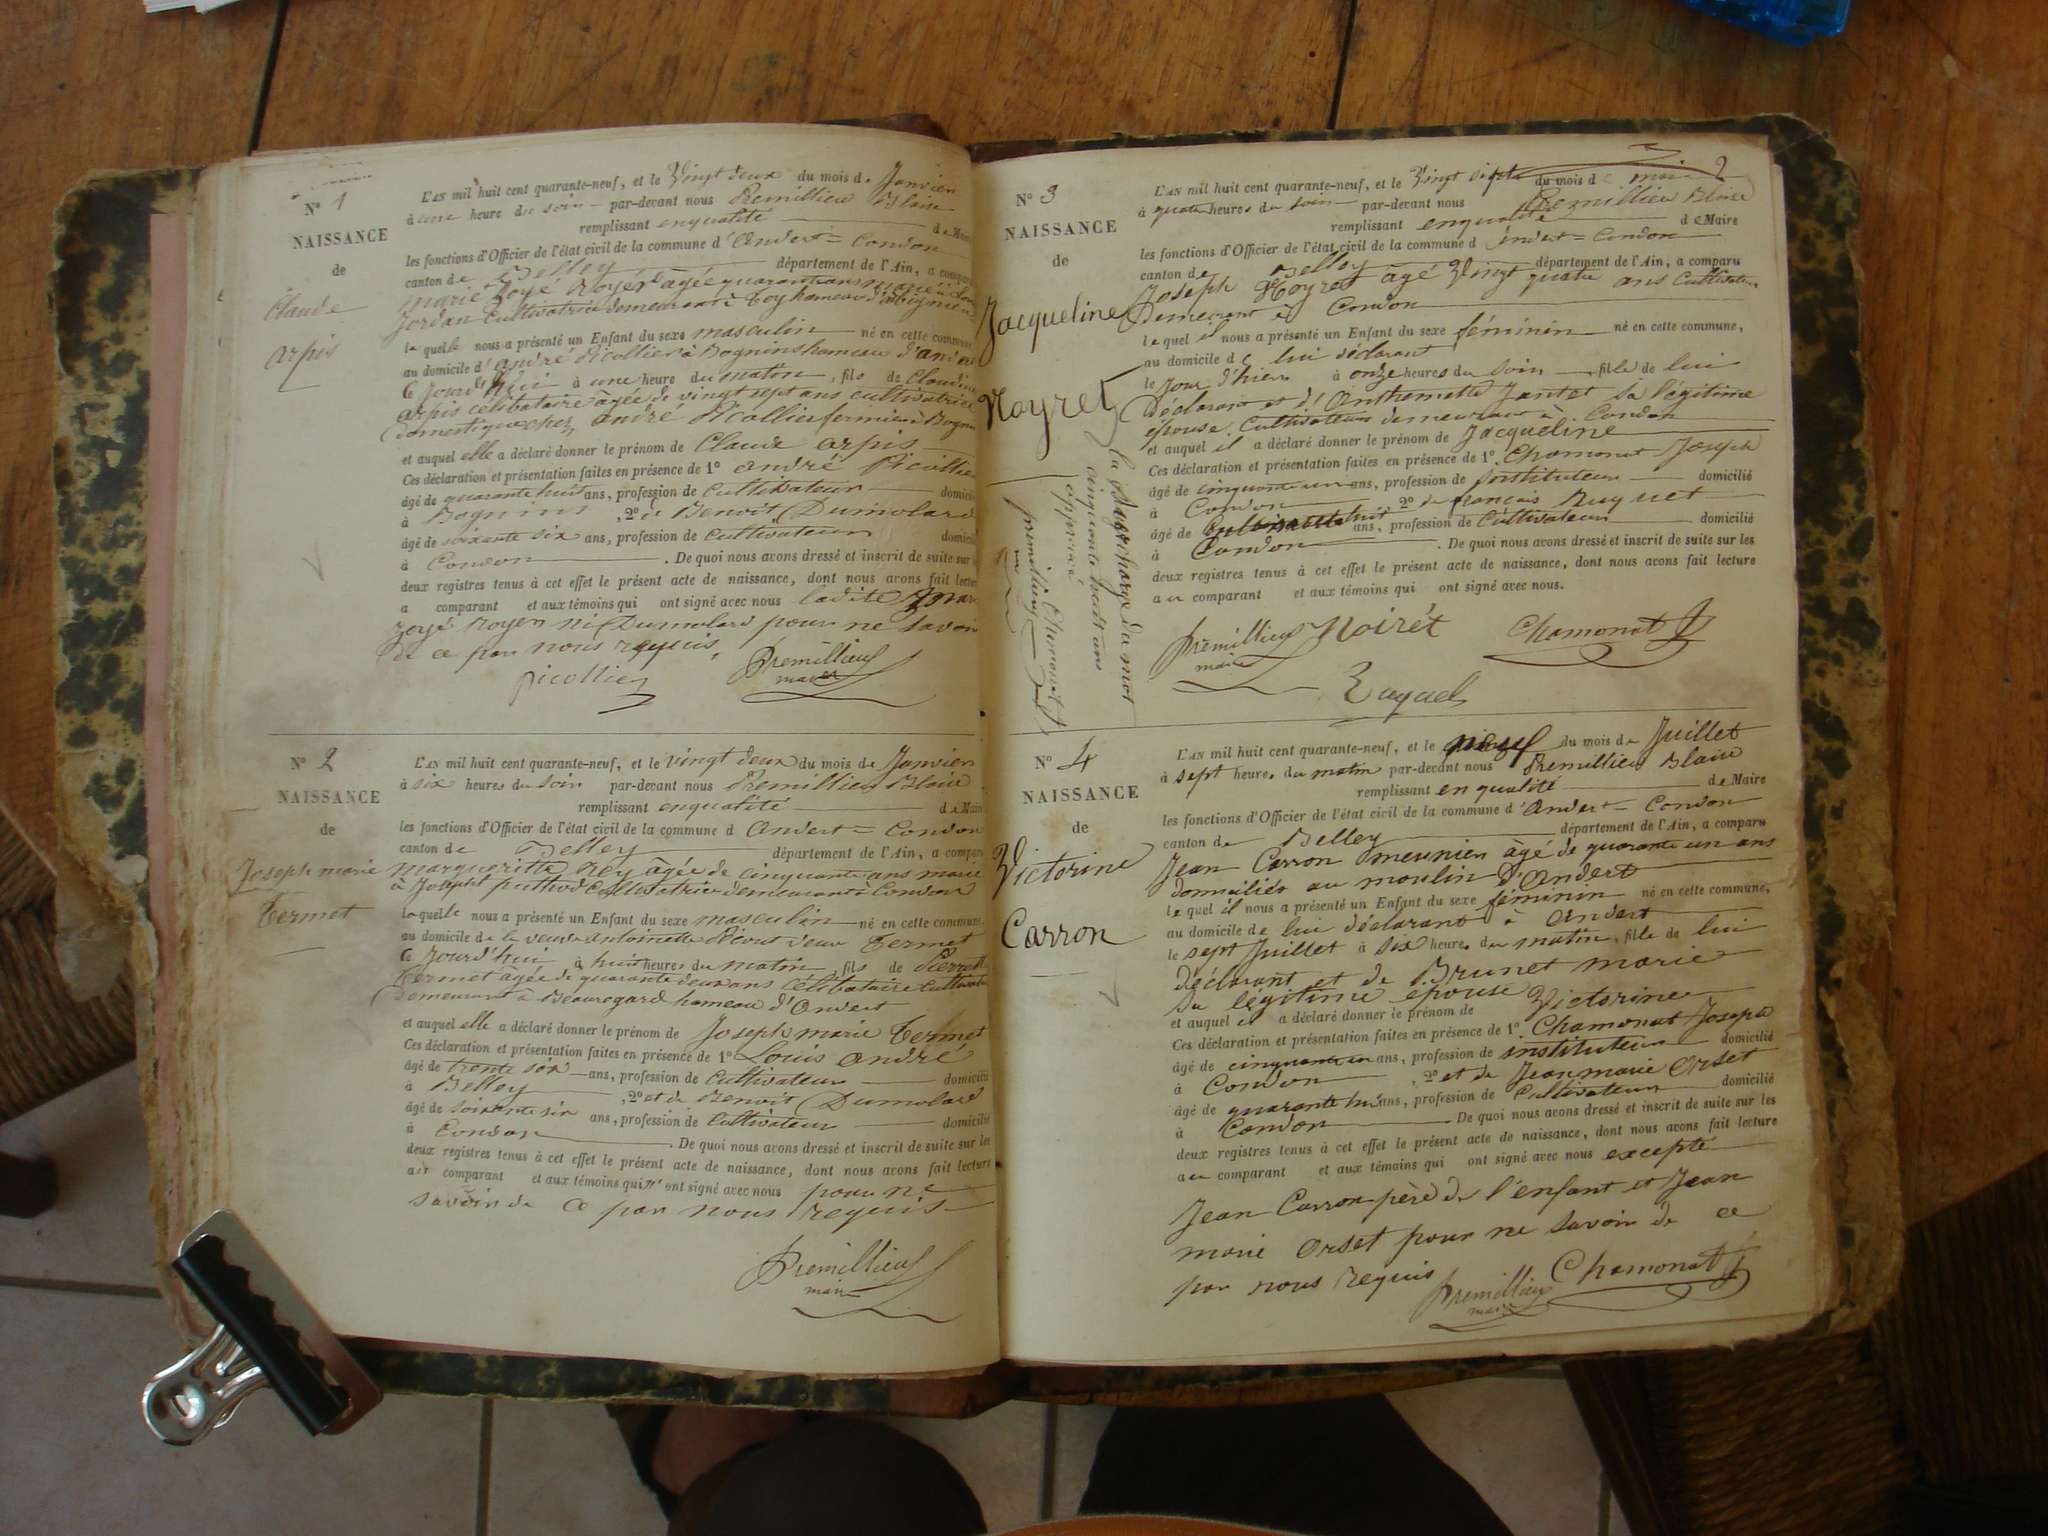 N° 1
NAISSANCE
de
Claude
arpis
L'AN mil huit cent quarante-neuf, et le Vingt deux du mois de Janvier
à une heure du soir par-devant nous Premillieu Blaise
remplissant enqualité de Maire
les fonctions d'Officier de l'état civil de la commune d'Andert = Condon
canton de Belley département de l'Ain, a comparu
marie âgée quarante ans
Jordan Cultivatrice demeurant à hameau
laquelle nous a présenté un Enfant du sexe masculin né en cette commune
au domicile d'andré Picollier à Bognins hameau d'andert
ce jourd'hui à une heure du matin, fils de Claudine
arpis célibataire âgée de vingt sept ans cultivatrice
domestique chez andré Picollier fermier à Bognins
et auquel elle a déclaré donner le prénom de Claude arpis
Ces déclaration et présentation faites en présence de 1° andré Picollier
âgé de quarante huit ans, profession de Cultivateur domicilié
à Bognins, 2° de Benoit Dumolard
âgé de soixante six ans, profession de Cultivateur domicilié
à Condon. De quoi nous avons dressé et inscrit de suite sur les
deux registres tenus à cet effet le présent acte de naissance, dont nous avons fait lecture
a comparant et aux témoins qui ont signé avec nous ladite marie
ni Dumolard pour ne savoir
de ce par nous requis,
picollier Premillieu
maire
N° 2
NAISSANCE
de
Joseph marie
Termet
L'AN mil huit cent quarante-neuf, et le vingt deux du mois de Janvier
à six heures du soir par-devant nous Premillieu Blaise
remplissant enqualité de Maire
les fonctions d'Officier de l'état civil de la commune d Andert = Condon
canton de Belley département de l'Ain, a comparu
margueritte Rey âgée de cinquante ans marié
à Joseph puthod Cultivatrice demeurant à Condon
laquelle nous a présenté un Enfant du sexe masculin né en cette commune
au domicile de la veuve antoinette Termet
ce Jourd'hui à huit heures du matin, fils de Pierrette
Termet âgée de quarante deux ans célibataire Cultivatrice
demeurant à Beauregard hameau d'Andert
et auquel elle a déclaré donner le prénom de Joseph marie Termet
Ces déclaration et présentation faites en présence de 1° Louis andré
âgé de trente six ans, profession de Cultivateur domicilié
à Belley, 2° et de Benoit Dumolard
âgé de soixante six ans, profession de Cultivateur domicilié
à Condon. De quoi nous avons dressé et inscrit de suite sur les
deux registres tenus à cet effet le présent acte de naissance, dont nous avons fait lecture
aux comparant et aux témoins qui n'ont signé avec nous pour ne
savoir de ce par nous requis
Premillieu
maire
2
N° 3
NAISSANCE
de
Jacqueline
Noyret
la surcharge du mot
cinquante huit ans
approuvé
premillieu Chamonat J
maire
L'AN mil huit cent quarante-neuf, et le Vingt sixte du mois de mai
à quatre heures du soir par-devant nous Premillieu Blaise
remplissant enqualité de Maire
les fonctions d'Officier de l'état civil de la commune d Andert = Condon
canton de Belley département de l'Ain, a comparu
Joseph Noyret âgé Vingt quatre ans Cultivateur
Demeurant à Condon
lequel il nous a présenté un Enfant du sexe féminin né en cette commune,
au domicile de lui déclarant
le Jour d'hier à onze heures du soir, fille de lui
déclarant et d'Anthemette Jantet sa légitime
épouse Cultivateurs demeurant à Condon
et auquel il a déclaré donner le prénom de Jacqueline
Ces déclaration et présentation faites en présence de 1° Chamonat Joseph
âgé de cinquante un ans, profession de Instituteur domicilié
à Condon 2° de français Ruquet
âgé de ans, profession de Cultivateur domicilié
à Condon. De quoi nous avons dressé et inscrit de suite sur les
deux registres tenus à cet effet le présent acte de naissance, dont nous avons fait lecture
au comparant et aux témoins qui ont signé avec nous.
Premillieu Noirét Chamonat J
maire
Ruquet
N° 4
NAISSANCE
de
Victorine
Carron
L'AN mil huit cent quarante-neuf, et le neuf du mois de Juillet
à sept heures du matin par-devant nous Premillieu Blaise
remplissant en qualité de Maire
les fonctions d'Officier de l'état civil de la commune d'Andert = Condon
canton de Belley département de l'Ain, a comparu
Jean Carron meunier âgé de quarante un ans
domiciliés au moulin d'Andert
lequel il nous a présenté un Enfant du sexe féminin né en cette commune,
au domicile de lui déclarant à Andert
le sept Juillet à six heures du matin, fille de lui
déclarant et de Brunet marie
sa légitime épouse
et auquel il a déclaré donner le prénom de Victorine
Ces déclaration et présentation faites en présence de 1° Chamonat Joseph
âgé de cinquante un ans, profession de instituteur domicilié
à Condon, 2° et de Jean marie Orset
âgé de quarante huit ans, profession de Cultivateur domicilié
à Condon. De quoi nous avons dressé et inscrit de suite sur les
deux registres tenus à cet effet le présent acte de naissance, dont nous avons fait lecture
au comparant et aux témoins qui ont signé avec nous excepté
Jean Carron père de l'enfant et Jean
marie Orset pour ne savoir de ce
par nous requis
Premillieu Chamonat J
maire